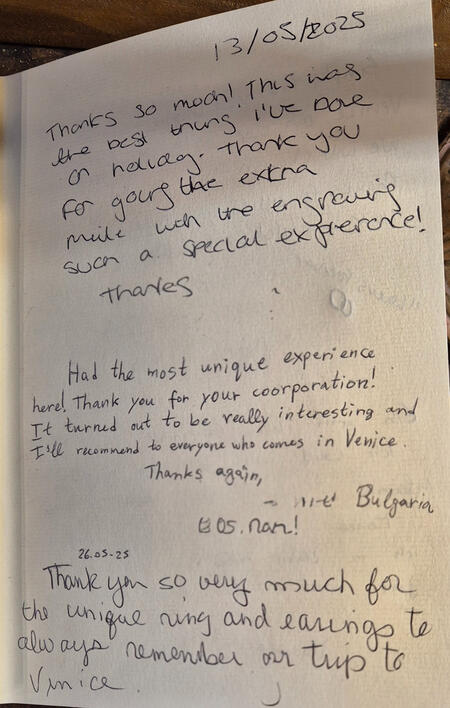 13/05/2025
Thanks so much! This was
the best thing I've Done
on holiday. Thank you
For going the extra
mile with the engraving
such a special experience!
Thanks
Had the most unique experience
here! Thank you for your coorporation!
It turned out to be really interesting and
I'll recommend to everyone who comes in Venice.
Thanks again,
Bulgaria
26.05-25
Thank you so very much for
the unique ring and earings to
always remember our trip to
Venice.